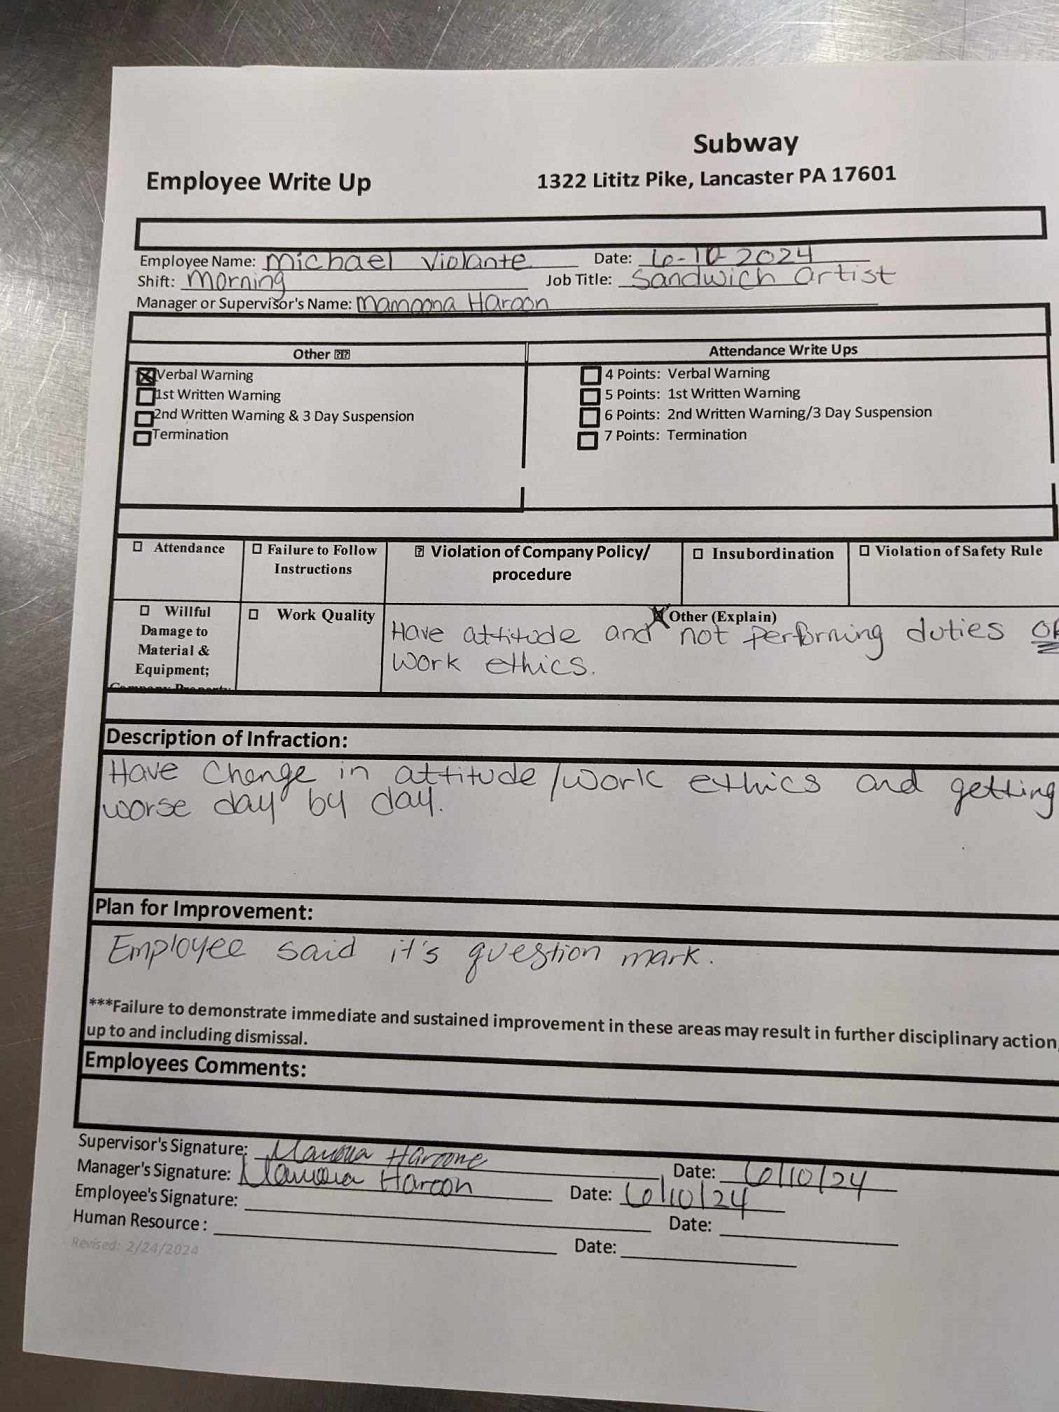 Subway
Employee Write Up
1322 Lititz Pike, Lancaster PA 17601
Employee Name: Michael Violante Date: 6-10-2024
Shift: Morning Job Title: Sandwich artist
Manager or Supervisor's Name: Mamoona Haroon
Other ⍰⍰ Attendance Write Ups
☒ Verbal Warning ☐ 4 Points: Verbal Warning
☐ 1st Written Warning ☐ 5 Points: 1st Written Warning
☐ 2nd Written Warning & 3 Day Suspension ☐ 6 Points: 2nd Written Warning/3 Day Suspension
☐ Termination ☐ 7 Points: Termination
☐ Attendance
☐ Failure to Follow
Instructions
⍰ Violation of Company Policy/
procedure
☐ Insubordination
☐ Violation of Safety Rule
☐ Willful
Damage to
Material &
Equipment;
Company Property
☐ Work Quality
☒ Other (Explain)
Have attitude and not performing duties
work ethics.
Description of Infraction:
Have Change in attitude/work ethics and getting
worse day by day.
Plan for Improvement:
Employee said it's question mark.
***Failure to demonstrate immediate and sustained improvement in these areas may result in further disciplinary action,
up to and including dismissal.
Employees Comments:
Supervisor's Signature: Date: 6/10/24
Manager's Signature: Haroon Date: 6/10/24
Employee's Signature: Date:
Human Resource : Date:
Revised: 2/24/2024